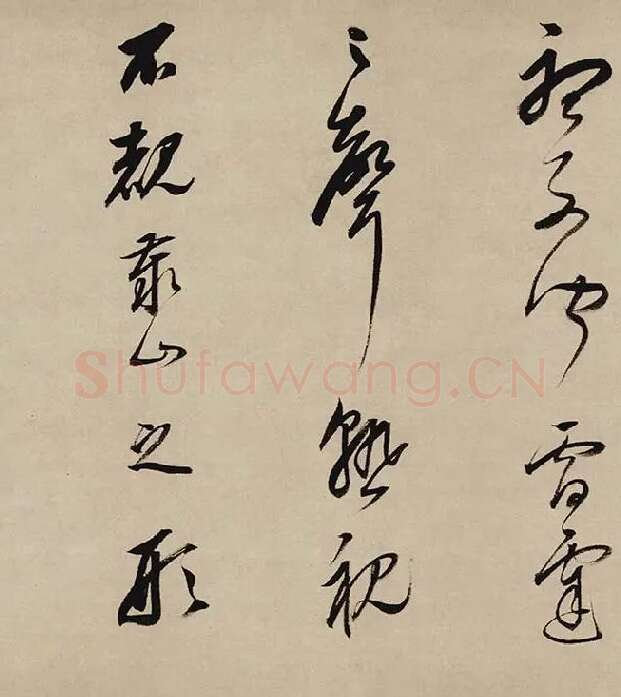 聽不聞雷霆
之聲熟視
不覩泰山之形
Shufawang.CN